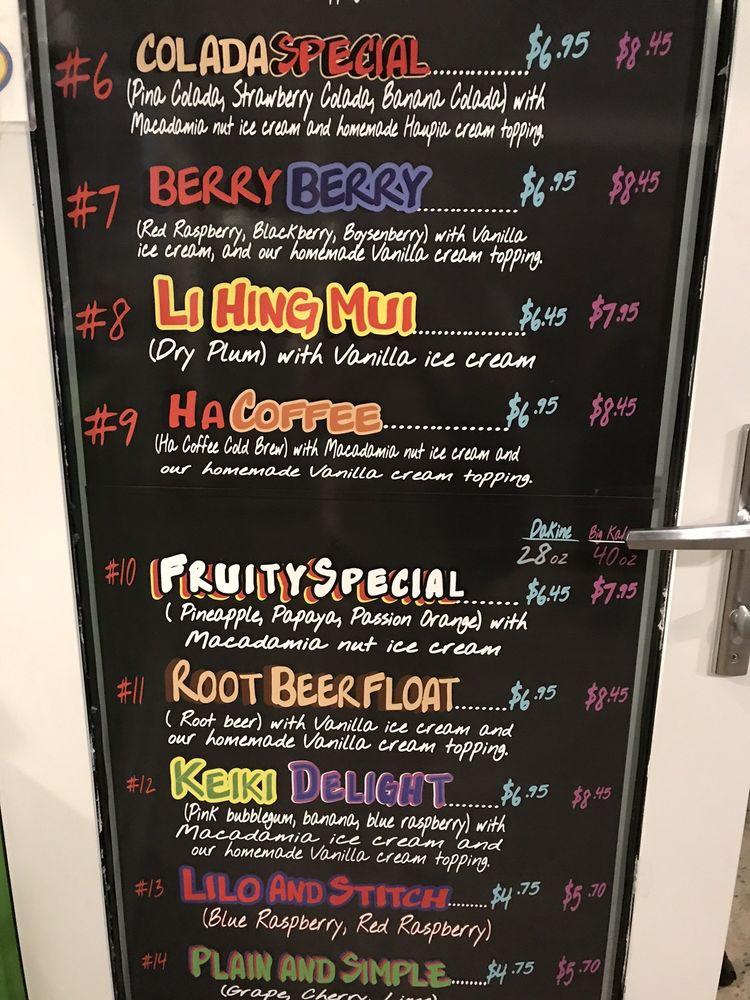 #6 COLADA SPECIAL................$6.95 $8.45
(Pina Colada, Strawberry Colada, Banana Colada) with
Macadamia nut ice cream and homemade Haupia cream topping.
#7 BERRY BERRY................$6.95 $8.45
(Red Raspberry, Blackberry, Boysenberry) with Vanilla
ice cream, and our homemade Vanilla cream topping.
#8 LI HING MUI................$6.45 $7.95
(Dry Plum) with Vanilla ice cream
#9 HA COFFEE................$6.95 $8.45
(Ha Coffee Cold Brew) with Macadamia nut ice cream and
our homemade Vanilla cream topping.
DaKine Big
28oz 40oz
#10 FRUITY SPECIAL.......$6.45 $7.95
( Pineapple, Papaya, Passion Orange) with
Macadamia nut ice cream
#11 ROOT BEER FLOAT.......$6.95 $8.45
( Root beer) with Vanilla ice cream and
our homemade Vanilla cream topping.
#12 KEIKI DELIGHT.......$6.95 $8.45
(Pink bubblegum, banana, blue raspberry) with
Macadamia ice cream and
our homemade Vanilla cream topping.
#13 LILO AND STITCH.......$4.75 $5.70
(Blue Raspberry, Red Raspberry)
#14 PLAIN AND SIMPLE.......$4.75 $5.70
(Grape, Cherry, Lime)